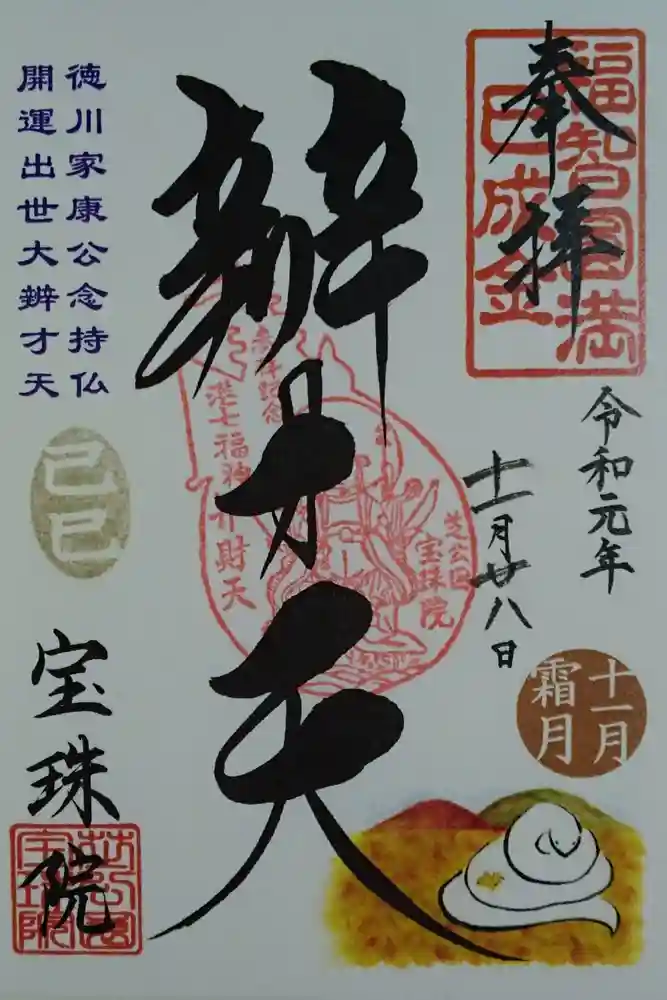 奉拝
福智円満
巳成金
令和元年
十一月廿八日
十一月
霜月
辨才天
港七福神弁財天
芝公園
宝珠院
徳川家康公念持仏
開運出世大辨才天
己巳
宝珠院